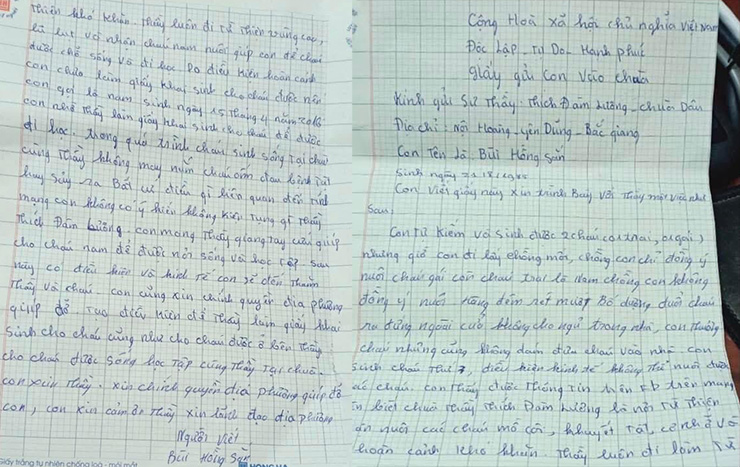 Cộng Hoà xã hội chủ nghĩa Việt Nam
Độc Lập_Tự Do_Hạnh Phúc
Giấy gửi con vào chùa
Kính gửi Sư Thầy: Thích Đàm Lương_chùa Dân
Địa chỉ: Nội Hoàng_Yên Dũng_Bắc giang
Con Tên là: Bùi Hồng Sản
Sinh ngày
Con viết giấy này xin trình Bày với Thầy một việc như
sau:
Con từ kiếm và sinh được 2 cháu (1 trai, 1 gái)
nhưng giờ con đi lấy chồng mới, chồng con chỉ đồng ý
nuôi cháu gái còn cháu trai là Nam chồng con không
đồng ý nuôi hàng đêm rét mướt Bố dượng đuổi cháu
ra đứng ngoài cửa không cho ngủ trong nhà, con thương
cháu nhưng cũng không dám đưa cháu vào nhà. con
sinh cháu thứ 3, điều kiện kinh tế không thể nuôi được
các cháu. con thấy được thông tin trên fb trên mạng
biết chùa Thầy Thích Đàm Lương là nơi từ Thiện
ăn nuôi các cháu mồ côi, khuyết tật, cơ nhỡ và
hoàn cảnh khó khăn. Thầy luôn đi làm từ
Thiện khó khăn. Thầy luôn đi từ Thiện vùng cao,
lũ lụt và nhận cháu nam nuôi giúp con để cháu
được chỗ sống và đi học. Do điều kiện hoàn cảnh
con chưa làm giấy khai sinh cho cháu được nên
con gọi là nam sinh ngày 15 tháng 4 năm
con nhờ Thầy làm giấy khai sinh cho cháu để được
đi học. trong quá trình cháu sinh sống tại chùa
cùng Thầy không may nếu cháu ốm đau bệnh tật
hay sảy ra Bất cứ điều gì liên quan đến tính
mạng con không có ý kiến không kiện tụng gì Thầy
Thích Đàm Lương. con mong Thầy giang tay cứu giúp
cho cháu nam để được nơi sống và học tập sau
này có điều kiện về kinh tế con sẽ đến Thăm
Thầy và cháu. con cũng xin chính quyền địa phương
giúp đỡ. Tạo điều kiện để Thầy làm giấy khai
sinh cho cháu cũng như cho cháu được ở bên Thầy
cho cháu được sống học tập cùng Thầy tại chùa.
con xin Thầy. xin chính quyền địa phương giúp đỡ
con, con xin cảm ơn Thầy xin lãnh đạo địa phương
Người viết
Bùi Hồng Sản
Giấy trắng tự nhiên chống loá - mỏi mắt